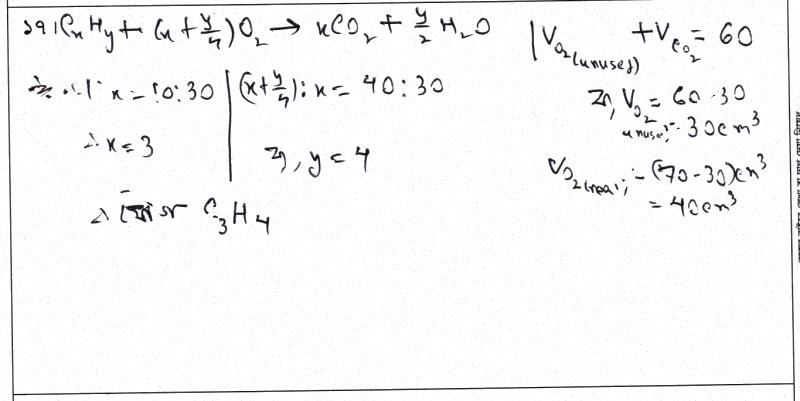 ১৭। CxHy + (x + y/4)O2 → xCO2 + y/2 H2O
∴ 1 : x = 10 : 30
∴ x = 3
(x + y/4) : x = 40 : 30
বা, y = 4
∴ যৌগ C3H4
VO2(unused) + VCO2 = 60
বা, VO2 unused = 60 - 30
= 30 cm³
VO2(real) = (70 - 30) cm³
= 40 cm³